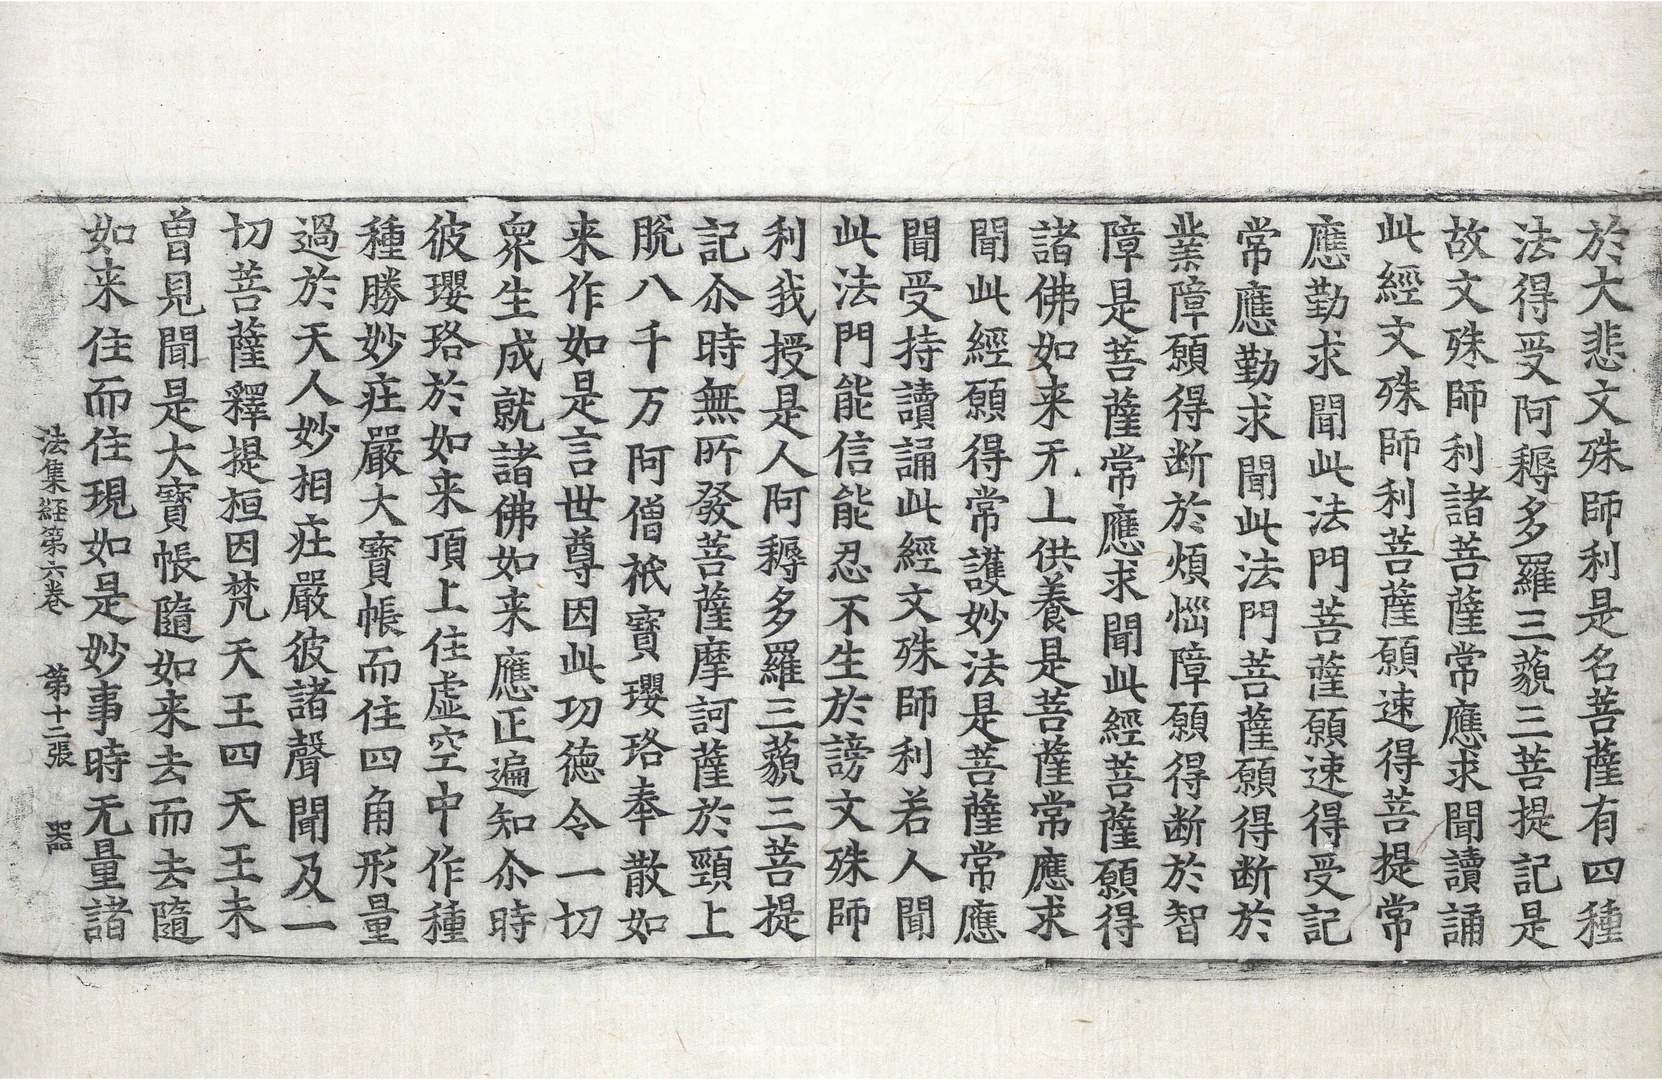 於大悲文殊師利是名菩薩有四種
法得受阿耨多羅三藐三菩提記是
故文殊師利諸菩薩常應求聞讀誦
此經文殊師利菩薩願速得菩提常
應勤求聞此法門菩薩願速得受記
常應勤求聞此法門菩薩願得断於
業障願得断於煩惱障願得断於智
障是菩薩常應求聞此經菩薩願得
諸佛如来无上供養是菩薩常應求
聞此經願得常護妙法是菩薩常應
聞受持讀誦此經文殊師利若人聞
此法門能信能忍不生於謗文殊師
利我授是人阿耨多羅三藐三菩提
記尒時無所發菩薩摩訶薩於頸上
脫八千万阿僧祇寶瓔珞奉散如
来作如是言世尊因此功德令一切
衆生成就諸佛如来應正遍知尒時
彼瓔珞於如来頂上住虛空中作種
種勝妙庄嚴大寶帳而住四角形量
過於天人妙相庄嚴彼諸聲聞及一
切菩薩釋提桓因梵天王四天王未
曾見聞是大寶帳隨如来去而去隨
如来住而住現如是妙事時无量諸
法集経第六卷　第十二張　器